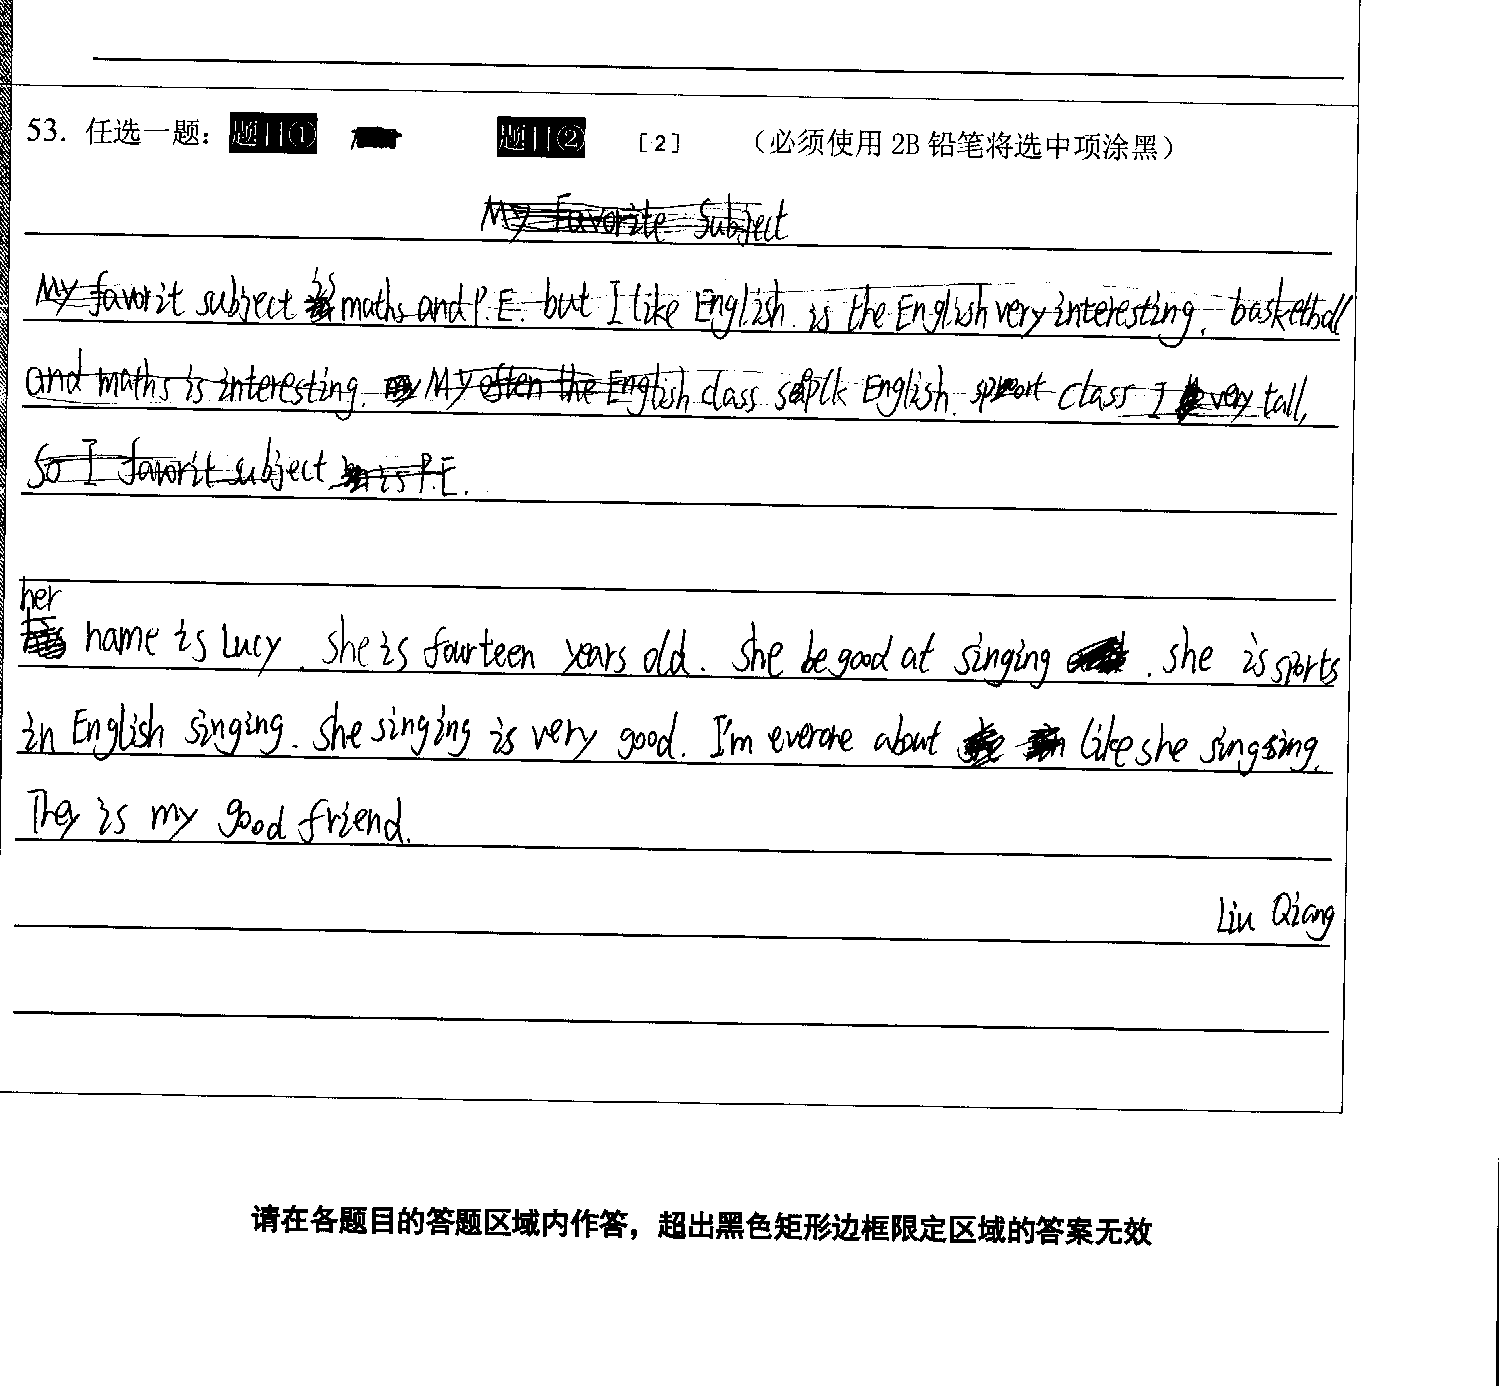 53. 任选一题： 题目① 题目② [2] （必须使用 2B 铅笔将选中项涂黑）
My Favorite Subject
My favorit subject is maths and P.E. but I like English. is the English very interesting. basketball
and maths is interesting. My often the English class English. class I very tall,
So I favorit subject is P.E.
her
name is Lucy. She is fourteen years old. She be good at singing. she is sports
in English singing. She singing is very good. I'm everone about like she singsing.
They is my good friend.
Liu Qiang
请在各题目的答题区域内作答，超出黑色矩形边框限定区域的答案无效